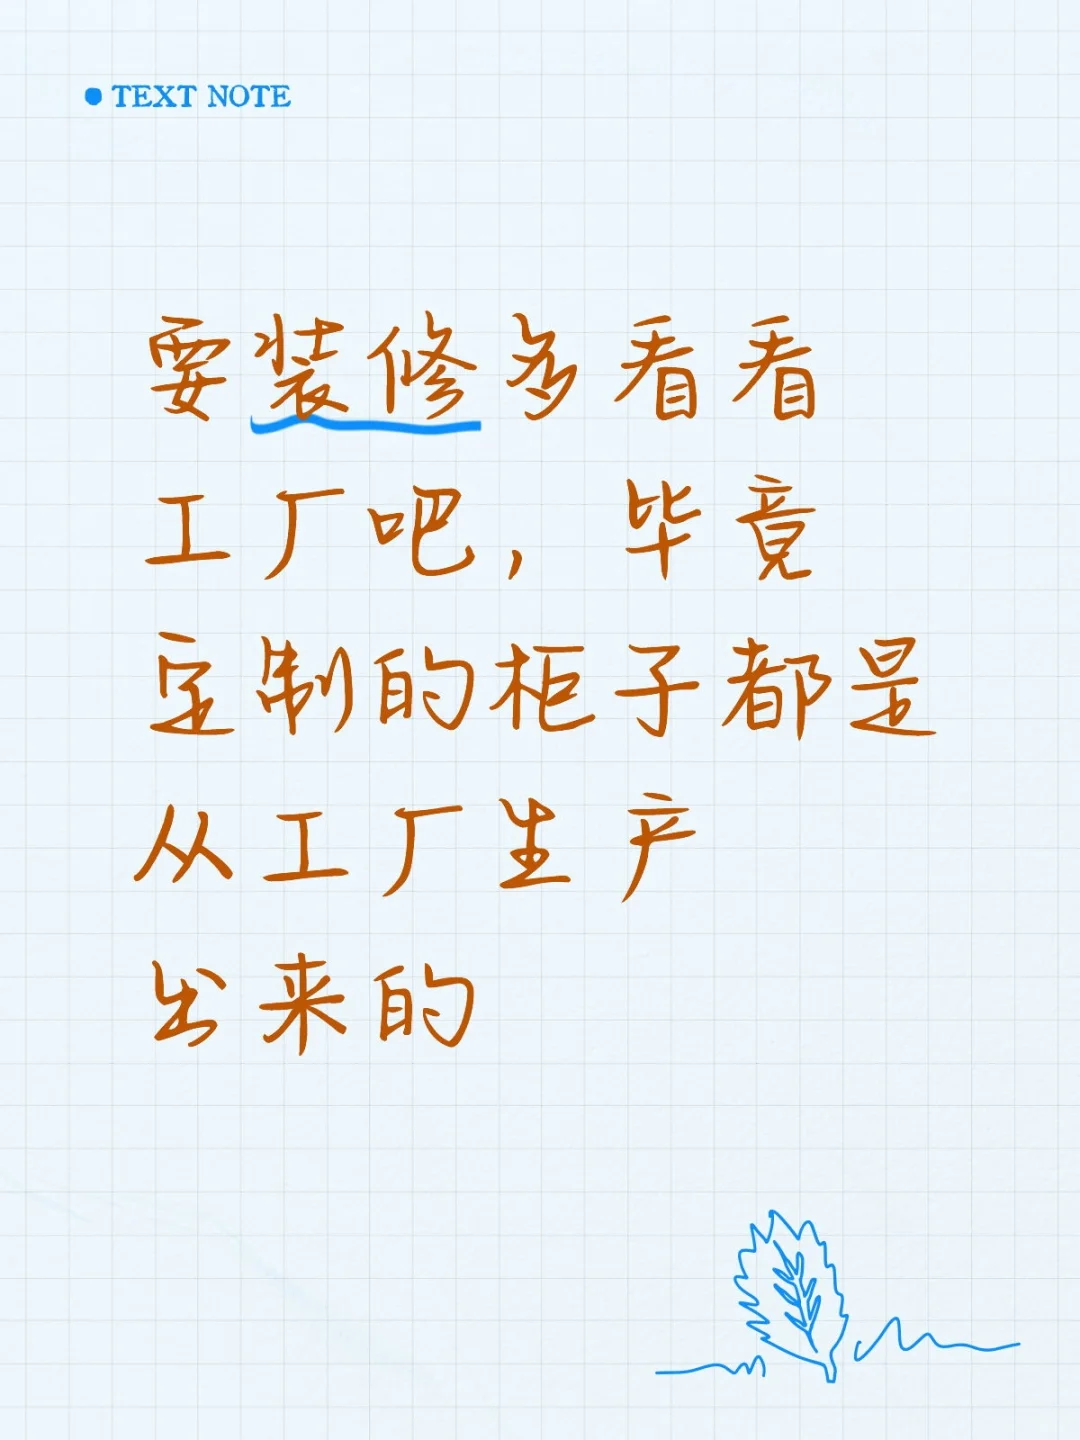 TEXT NOTE
要装修多看看
工厂吧，毕竟
定制的柜子都是
从工厂生产
出来的